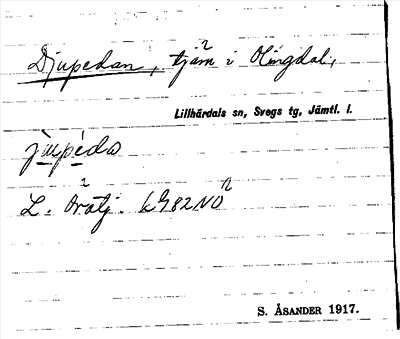 Djupedan, tjärn i Olingdal,
Lillhärdals sn, Svegs tg, Jämtl. l.
jupéda
L.
S. ÅSANDER 1917.